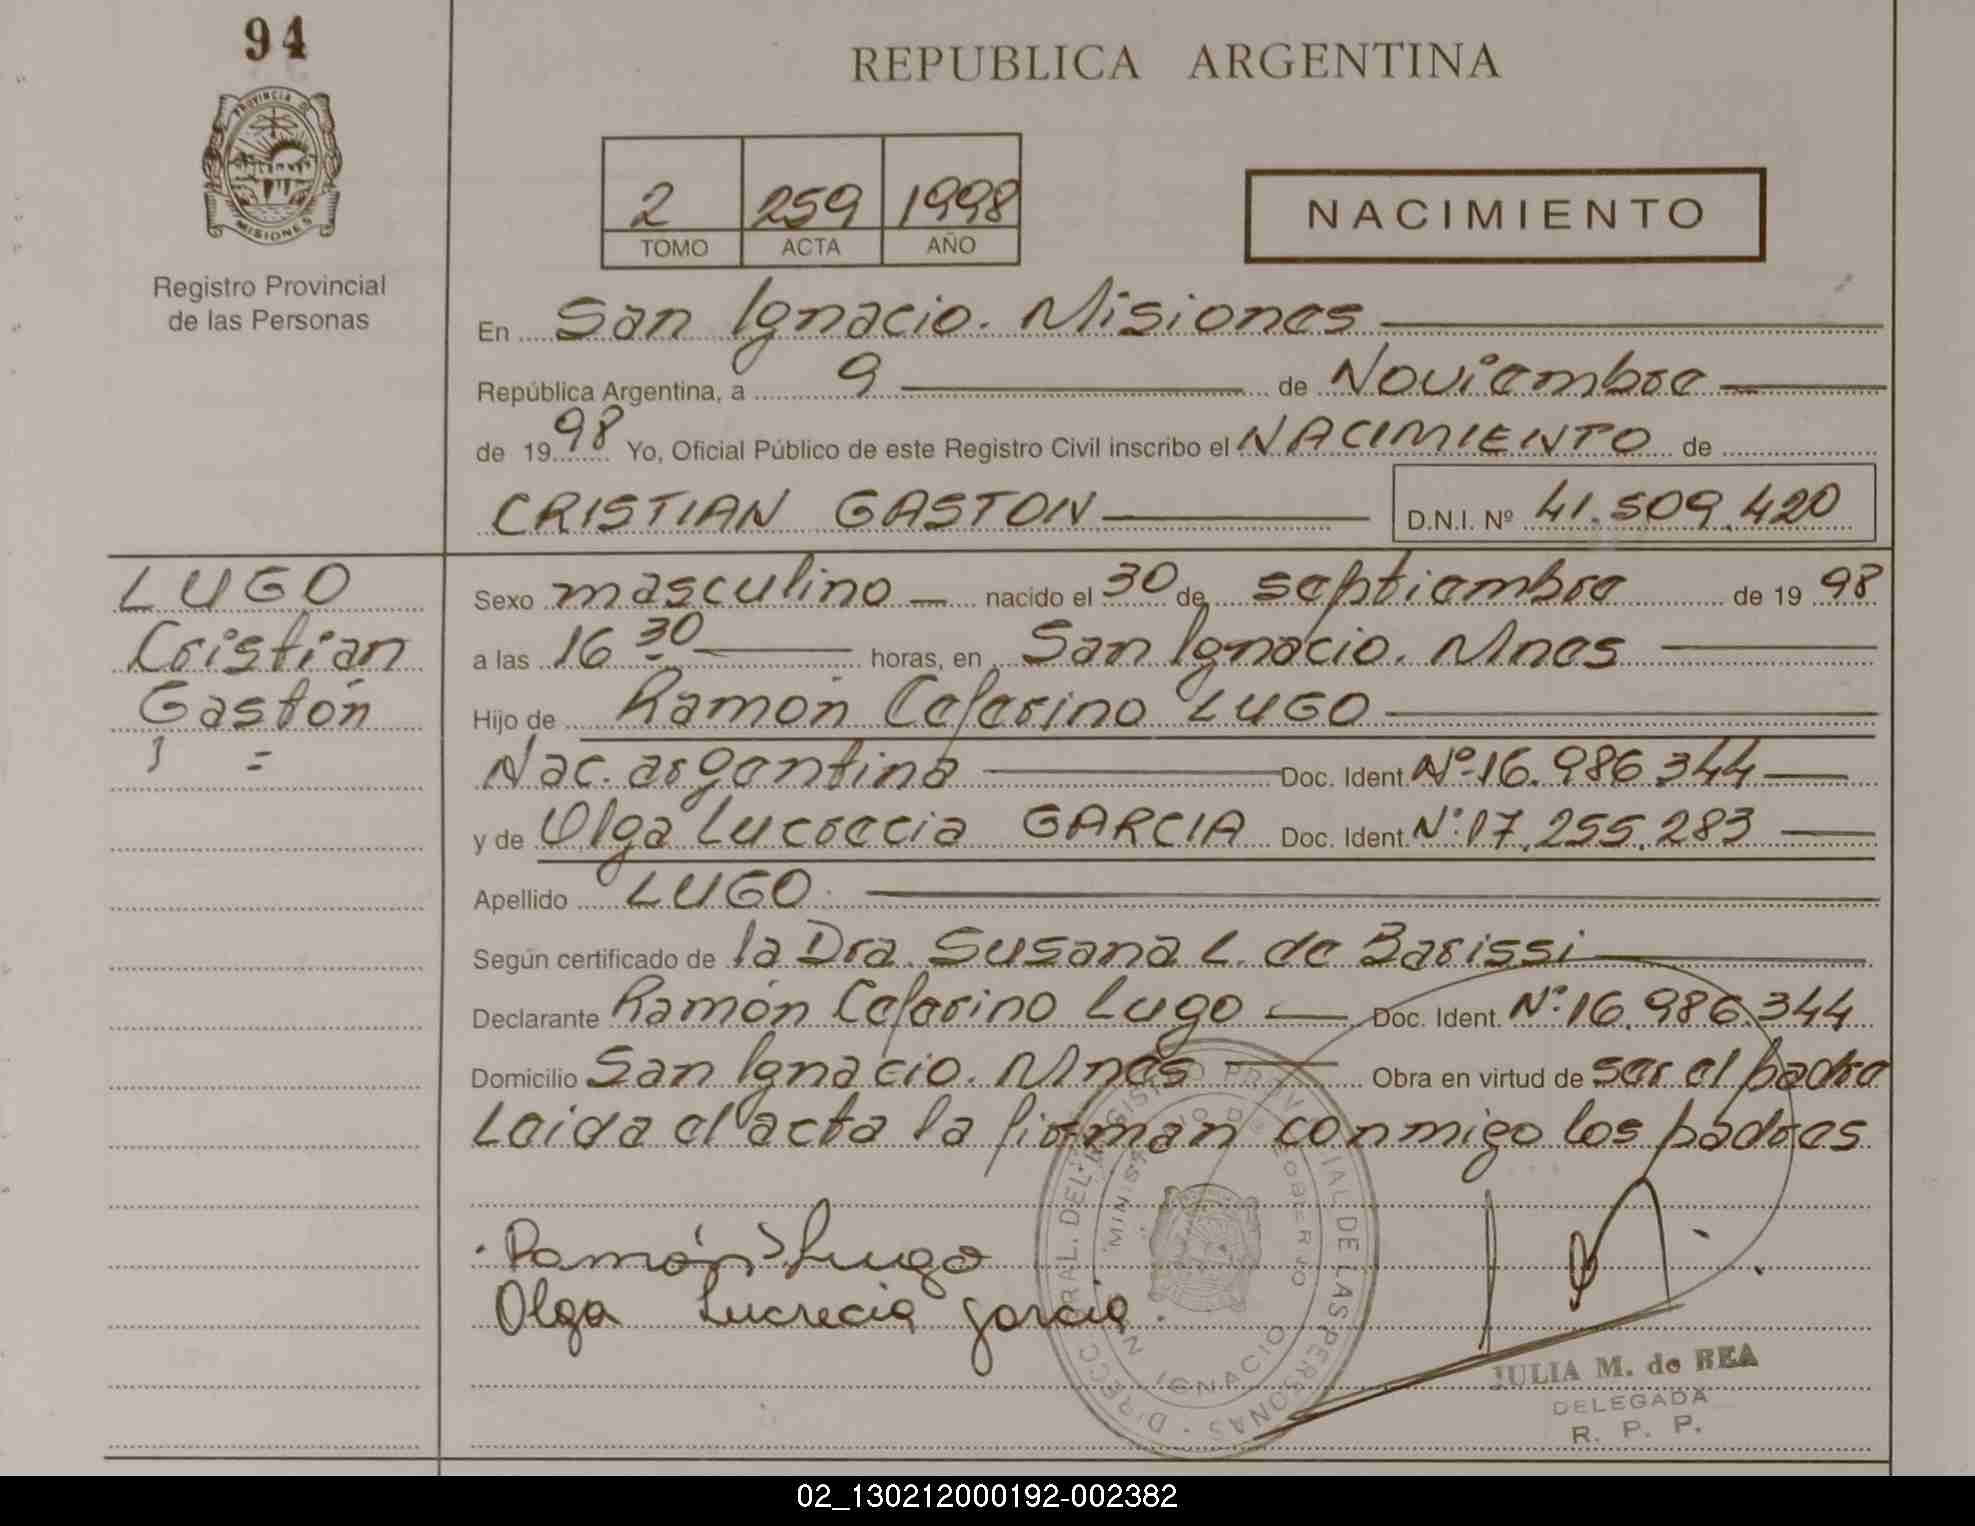 94
PROVINCIA DE
MISIONES
Registro Provincial
de las Personas
REPUBLICA ARGENTINA
2 259 1998
TOMO ACTA AÑO
NACIMIENTO
En San Ignacio. Misiones
República Argentina, a 9 de Noviembre
de 1998 Yo, Oficial Público de este Registro Civil inscribo el NACIMIENTO de
CRISTIAN GASTON D.N.I. Nº 41.509.420
LUGO
Cristian
Gastón
Sexo masculino nacido el 30 de septiembre de 1998
a las 16 30 horas, en San Ignacio. Mnes
Hijo de Ramón Ceferino LUGO
Nac. argentina Doc. Ident. Nº 16.986.344
y de Olga Lucrecia GARCIA Doc. Ident. Nº 17.255.283
Apellido LUGO
Según certificado de la Dra. Susana L. de Barissi
Declarante Ramón Ceferino Lugo Doc. Ident. Nº 16.986.344
Domicilio San Ignacio. Mnes Obra en virtud de ser el padre
Leida el acta la firman conmigo los padres
Ramón Lugo
Olga Lucrecia garcia.
JULIA M. de REA
DELEGADA
R. P. P.
02_130212000192-002382